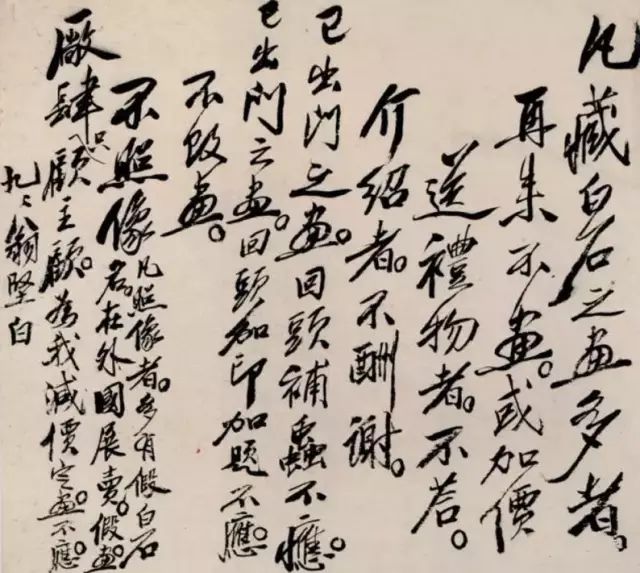 凡藏白石之畫多者。
再来不畫。或加價
送禮物者。不荅。
介紹者。不酬謝。
已出門之畫。回頭補蟲不應。
已出門之畫。回頭加印加題不應。
不改畫。
不照像。凡照像者。多有假白石
名。在外國展賣。假畫。
廠肆只顧主顧。為我減價定畫。不應。
翁堅白